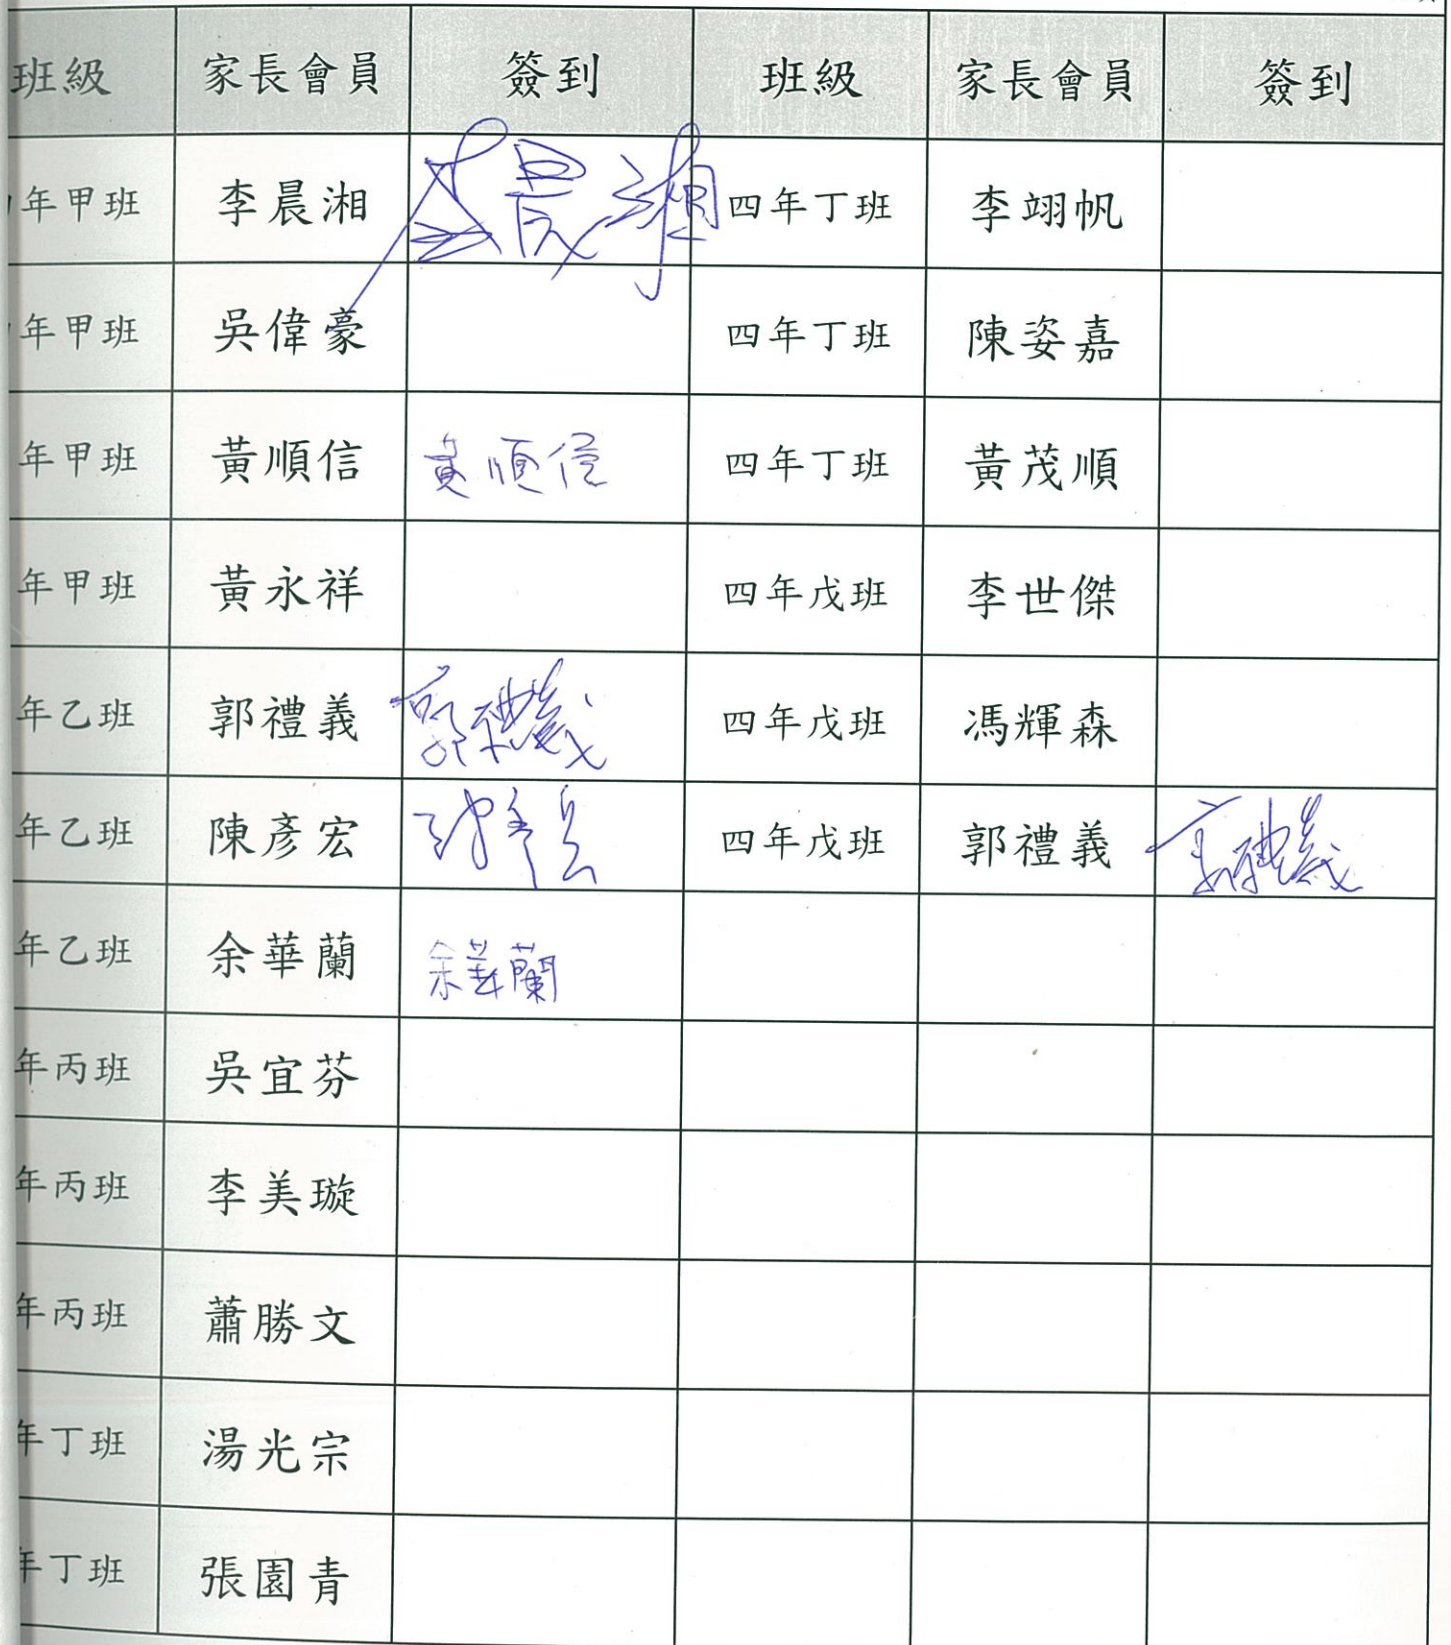 班級 家長會員 簽到 班級 家長會員 簽到
年甲班 李晨湘 李晨湘 四年丁班 李翊帆
年甲班 吳偉豪 四年丁班 陳姿嘉
年甲班 黃順信 黃順信 四年丁班 黃茂順
年甲班 黃永祥 四年戊班 李世傑
年乙班 郭禮義 郭禮義 四年戊班 馮輝森
年乙班 陳彥宏 陳彥宏 四年戊班 郭禮義 郭禮義
年乙班 余華蘭 余華蘭
年丙班 吳宜芬
年丙班 李美璇
年丙班 蕭勝文
年丁班 湯光宗
年丁班 張園青